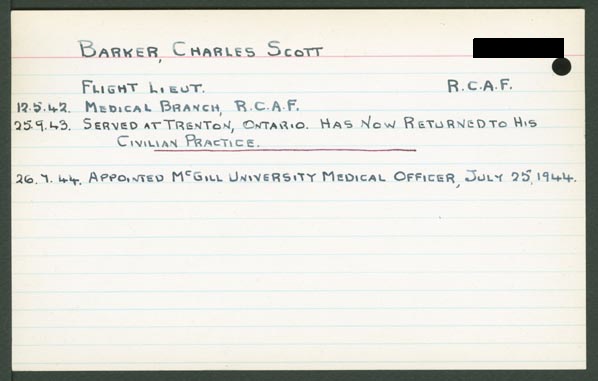 BARKER, CHARLES SCOTT
FLIGHT LIEUT. R.C.A.F.
12.5.42. MEDICAL BRANCH, R.C.A.F.
25.9.43. SERVED AT TRENTON, ONTARIO. HAS NOW RETURNED TO HIS
CIVILIAN PRACTICE.
26.7.44. APPOINTED McGILL UNIVERSITY MEDICAL OFFICER, JULY 25, 1944.